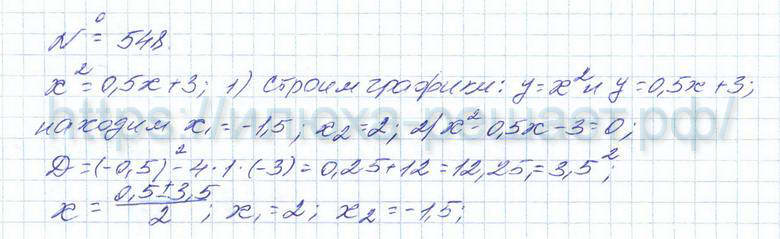 № 548.
x² = 0,5x + 3; 1) Строим графики: y = x² и y = 0,5x + 3;
находим x₁ = -1,5; x₂ = 2; 2) x² - 0,5x - 3 = 0;
D = (-0,5)² - 4·1·(-3) = 0,25 + 12 = 12,25 = 3,5²;
x = (0,5 ± 3,5)/2; x₁ = 2; x₂ = -1,5;